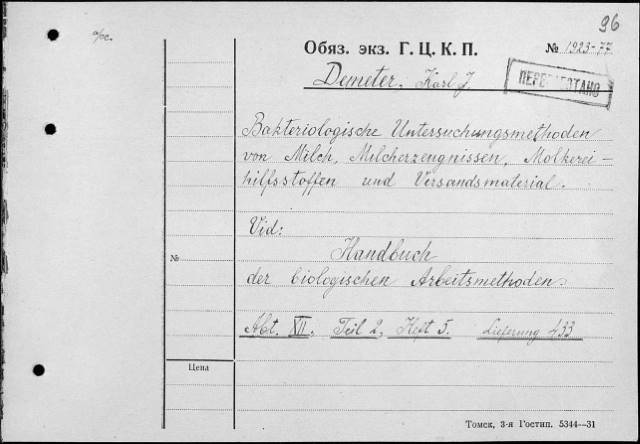 96
Обяз. экз. Г. Ц. К. П.
№ 1923-77
Demeter, Karl J.
Bakteriologische Untersuchungsmethoden
von Milch, Milcherzeugnissen, Molkerei-
hilfsstoffen und Versandsmaterial.
Vid:
Handbuch
№
der biologischen Arbeitsmethoden.
Abt. XII, Teil 2, Heft 5. Lieferung 433
Цена
Томск, 3-я Гостип. 5344—31